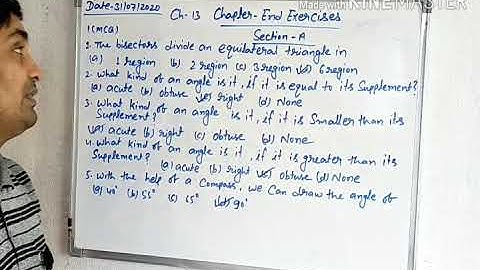 Made With KINEMASTER
Date-31/07/2020
Ch-13 Chapter-End Exercises
1(MCQ)
Section-A
1. The bisectors divide an equilateral triangle in
(a) 1 region (b) 2 region (c) 3 region (d) 6 region
2. What kind of an angle is it, if it is equal to its Supplement?
(a) acute (b) obtuse (c) right (d) None
3. What kind of an angle is it, if it is Smaller than its
Supplement?
(a) acute (b) right (c) obtuse (d) None
4. What kind of an angle is it, if it is greater than its
Supplement? (a) acute (b) right (c) obtuse (d) None
5. With the help of a Compass, we can draw the angle of
(a) 40° (b) 55° (c) 65° (d) 90°